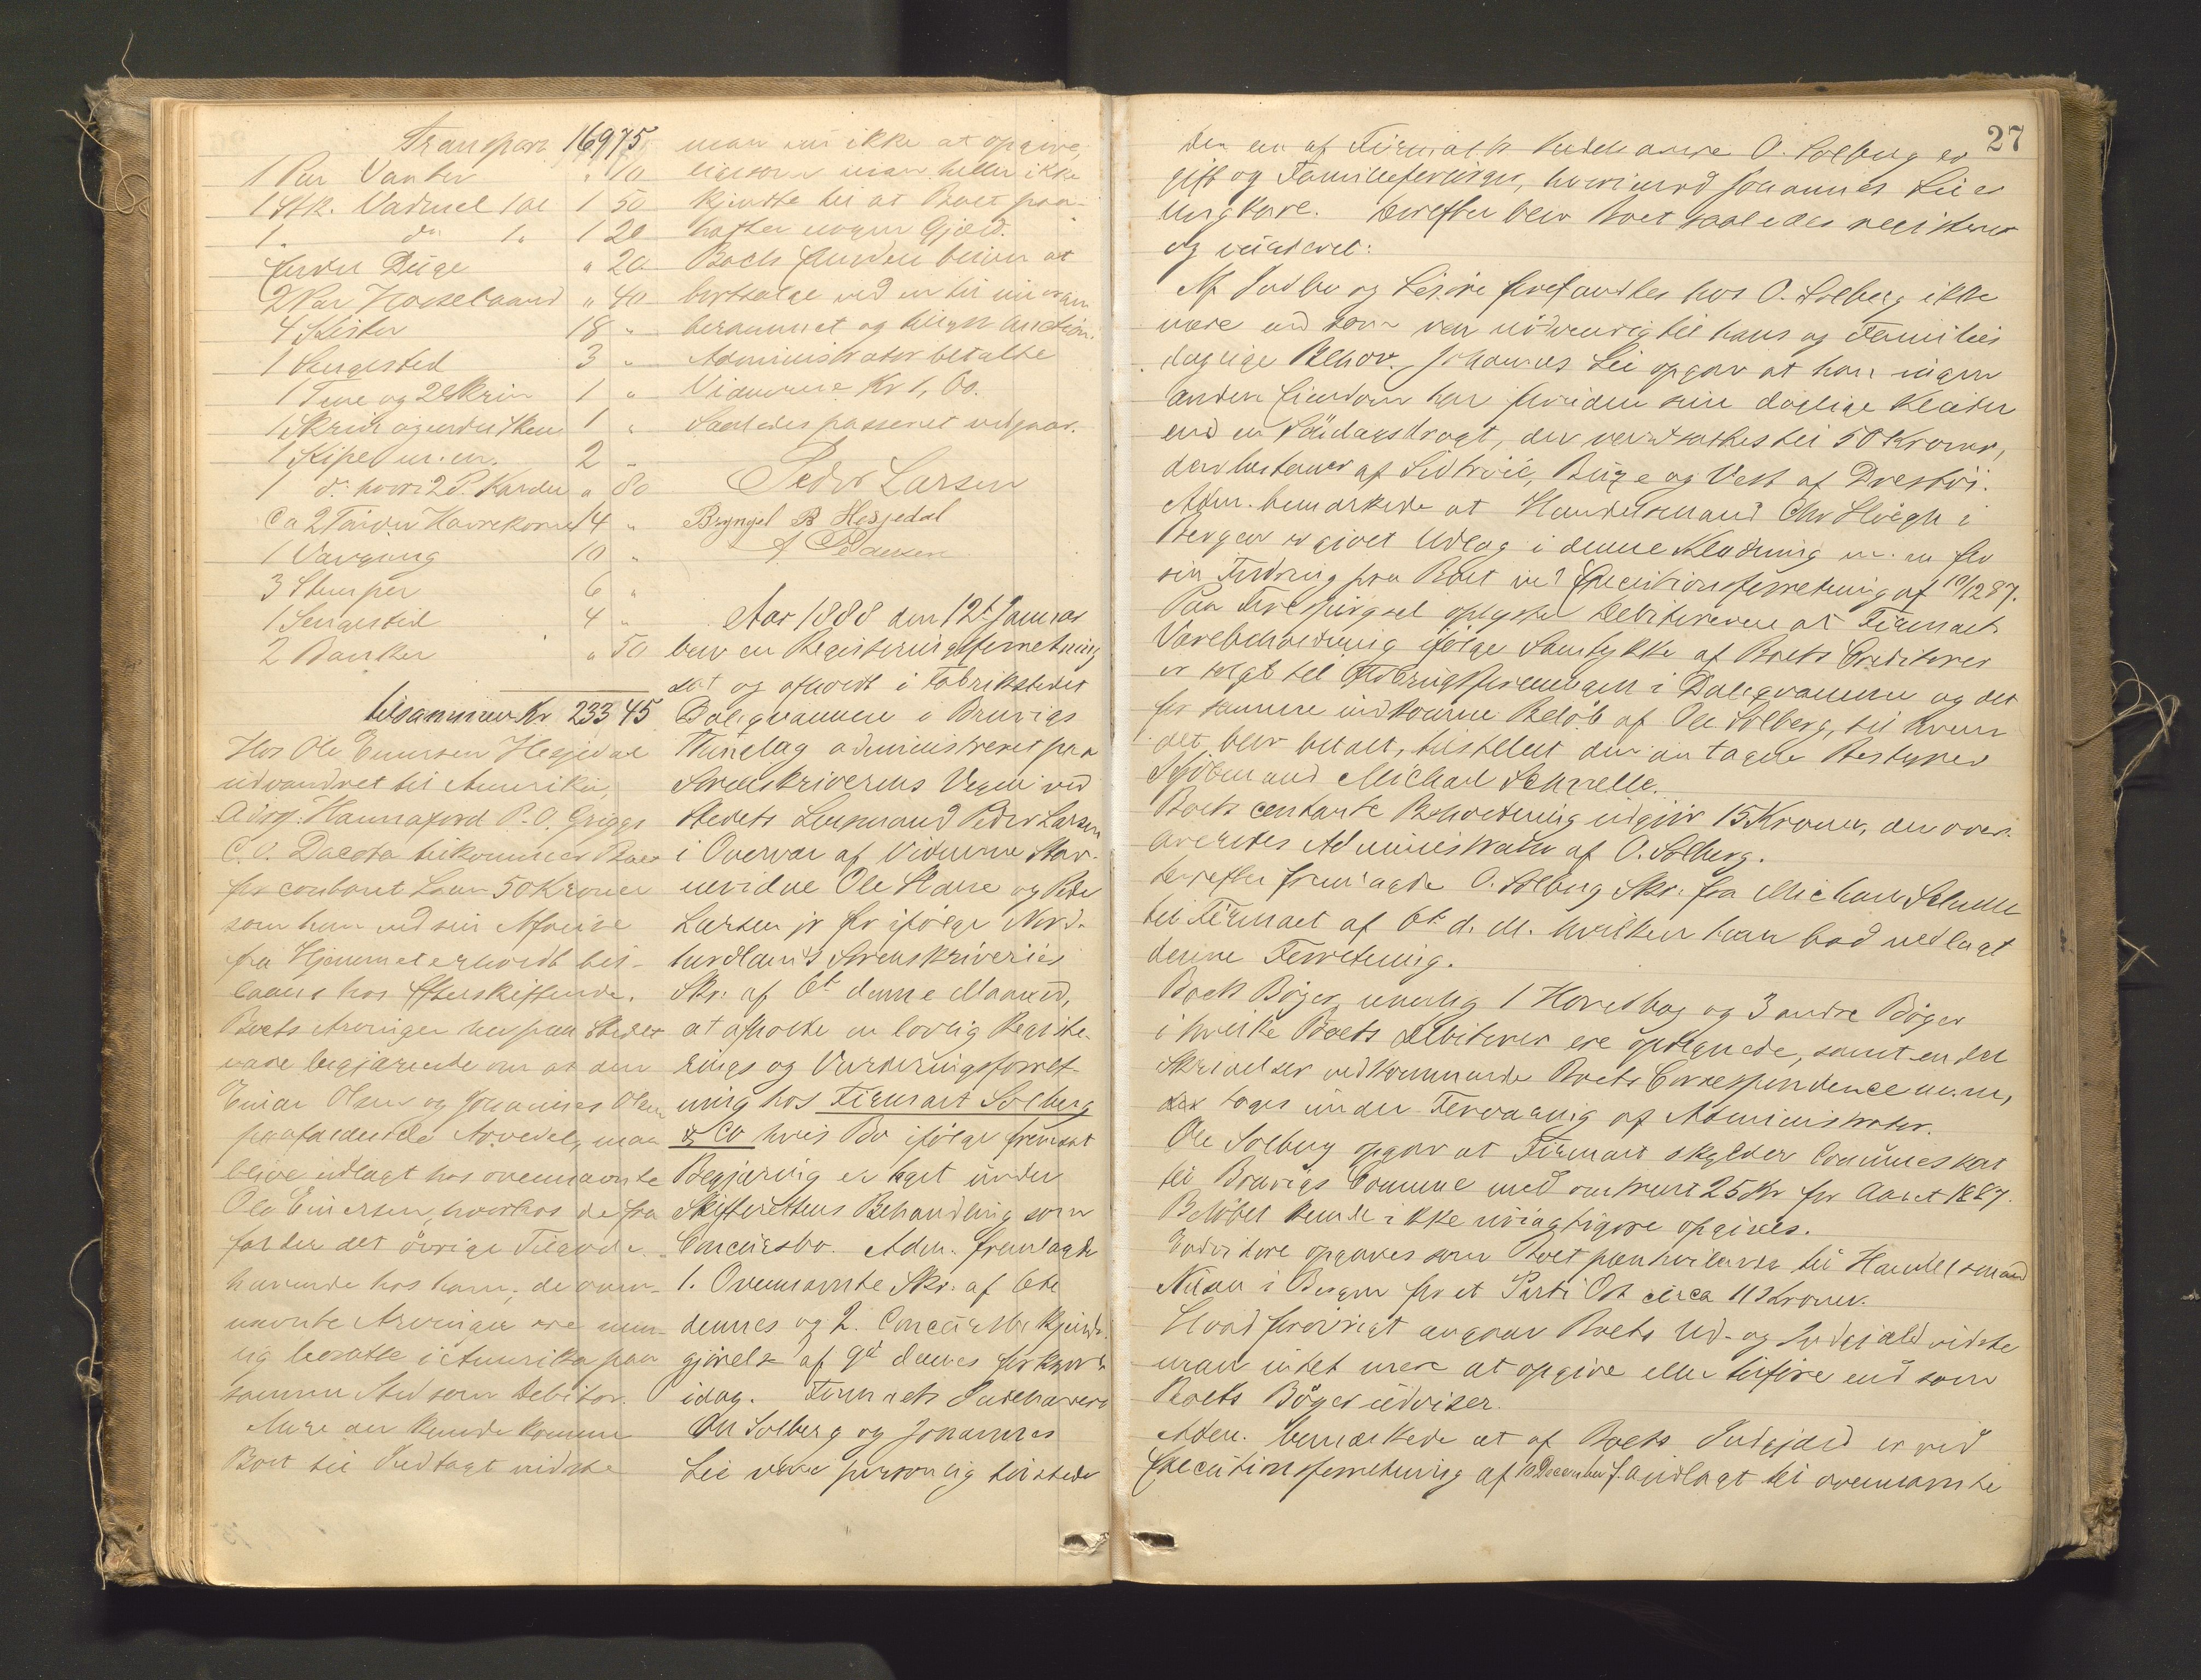 Transport 169 75
1 Par Vanter " 10
1 Stk. Vadmel 1 al 1 50
1 " do 1 " 1 20
Duge " 20
2 Par Hoselaand " 40
4 Kister 18 "
1 Sengested 3 "
1 Tine og 2 Skrin 1 "
1 Skrin og 1
1 Kipe m. m. 2 "
1 do. hvori 2 P. Karder " 80
Ca 2 Tønder Havrekorn 14 "
1 10 "
3 Stumper 6 "
1 Sengested 4 "
2 Banker " 50
tilsammen Kr 233 45
Hos Ole Einersen Hesjedal
udvandret til Amerika,
Adrs. Hannaford P. O. Griggs
C. O. Dacota tilkommer Boet
for contant Laan 50 Kroner
som han ved sin Afreise
fra Hjemmet erholdt til-
laans hos Efterskiftende.
Boets Arvinger her paa Stedet
vare begjærende om at den
Einar Olsen og Johannes Olsen
paafaldende Arvedel, maa
blive udlagt hos ovennævnte
Ole Einersen, hvorhos de fra
falder det øvrige Tilgode-
havende hos ham; de oven-
nævnte Arvinger ere nem-
lig bosatte i Amerika paa
samme Sted som Debitor.
Mere der kunde komme
Boet til Indtægt vidste
man nu ikke at opgive,
ligesom man heller ikke
kjendte til at Boet paa-
hafter nogen Gjæld.
Boets Eiendele bliver at
bortsælge ved en til imorgen
berammet og lyst Auction.
Administrator betalte
Vidnerne Kr 1,00.
Saaledes passeret vidgaar.
Peder Larsen
Bryngel B Hesjedal
A
Aar 1888 den 12te Januar
blev en Registreringsforretning
sat og afholdt i Fabrikstedet
Daleqvammen i Bruvigs
Thinglag administreret paa
Sorenskriverens Vegne ved
Stedets Lensmand Peder Larsen
i Overvær af Vidnerne Stev-
nevidne Ole Stane og Peder
Larsen jr for ifølge Nord-
hordlands Sorenskriveries
Skr. af 6te denne Maaned,
at afholde en lovlig Registe-
rings og Vurderingsforret-
ning hos Firmaet Solberg
& Co hvis Bo ifølge fremsat
Begjæring er taget under
Skifterettens Behandling som
Concursbo. Adm. fremlagde
1. Ovennævnte Skr. af 6te
dennes og 2. Concursbekjendt-
gjørelse af 9de dennes forkyndt
idag. Firmaets Indehavere
Ole Solberg og Johannes
Lie vare personlig tilstede
27
Den ene af Firmaets Indehavere O. Solberg er
gift og Familieforsørger, hvorimod Johannes Lie er
Ungkare. Derefter blev Boet saaledes registreret
og vurderet:
Af Indbo og Løsøre forefandtes hos O. Solberg ikke
mere end som var nødvendig til hans og Families
daglige Behov. Johannes Lie opgav at han ingen
anden Eiendom har foruden sine daglige Klæder
end en Søndagsdragt, der værdsættes til 50 Kroner,
den bestaaer af Sidtrøie, Buxe og Vest af Drestøi.
Adm. bemærkede at Handelsmand Chr Høegh i
Bergen er givet Udlæg i denne Klædning m. m. for
sin Fordring paa Boet ved Executionsforretning af 10/12 87.
Paa Forespørgsel oplyste Debitorerne at Firmaets
Varebeholdning ifølge Samtykke af Boets Creditorer
er solgt til Forbrugsforeningen i Daleqvammen og det
for samme indkomne Beløb af Ole Solberg, til hvem
det blev betalt, tilstillet den antagne Bestyrer
Michael Schnelle.
Boets contante Beholdning udgjør 15 Kroner, der over-
leveredes Administrator af O. Solberg.
Derefter fremlagde O. Solberg Skr. fra Michael Schnelle
til Firmaet af 6te d. M. hvilken han bad vedlagt
denne Forretning.
Boets Bøger, nemlig 1 Hovedbog og 3 andre Bøger
i hvilke Boets Debitorer ere optegnede, samt en Del
Skrivelser vedkommende Boets Correspondence m. m,
toges under Forvaring af Administrator.
Ole Solberg opgav at Firmaet skylder Communeskat
til Bruvigs Commune med omtrent 25 Kr for Aaret 1887.
Beløbet kunde ikke nøiagtigere opgives.
Endvidere opgaves som Boet paahvilende til Handelsmand
i Bergen for et Parti Ost circa 11 Kroner.
Hvad forøvrigt angaar Boets Ud- og Indgjæld vidste
man intet mere at opgive eller tilføie end som
Boets Bøger udviser.
Adm. bemærkede at af Boets Indgjæld er ved
Executionsforretning af 10 December f. A. udlagt til ovennævnte